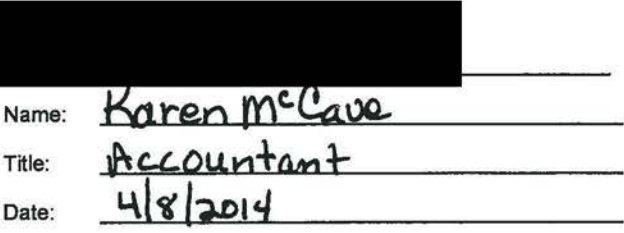 Name: Karen McCave
Title: Accountant
Date: 4/8/2014